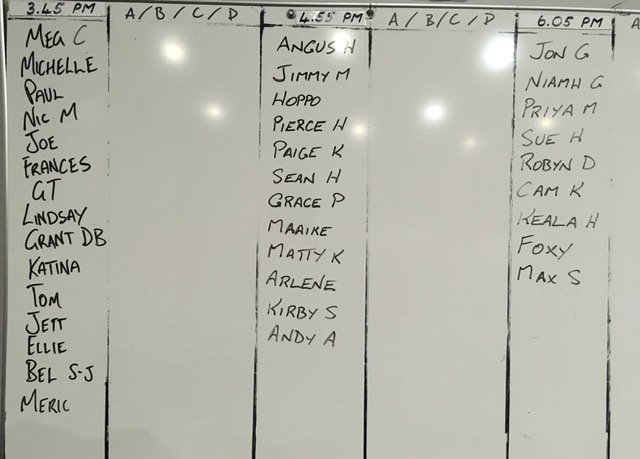 3.45 PM
A / B / C / D
4.55 PM
A / B / C / D
6.05 PM
A
MEG C
MICHELLE
PAUL
NIC M
JOE
FRANCES
GT
LINDSAY
GRANT DB
KATINA
TOM
JETT
ELLIE
BEL S-J
MERIC
ANGUS H
JIMMY M
HOPPO
PIERCE H
PAIGE K
SEAN H
GRACE P
MAAIKE
MATTY K
ARLENE
KIRBY S
ANDY A
JON G
NIAMH G
PRIYA M
SUE H
ROBYN D
CAM K
KEALA H
FOXY
MAX S